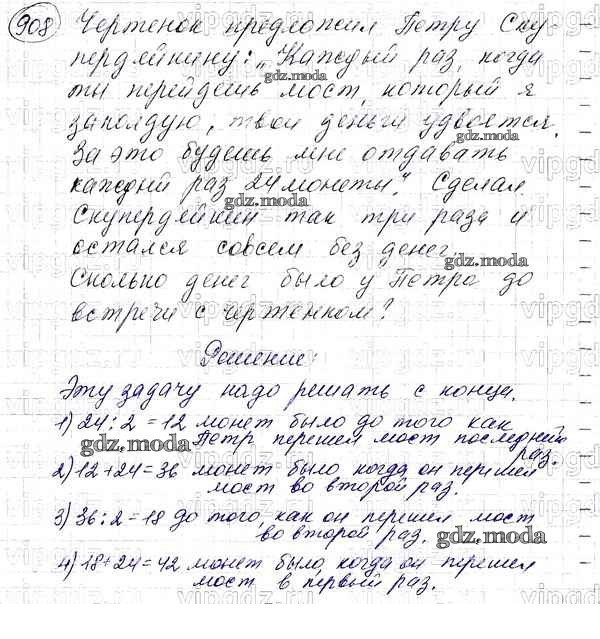 908 Чертенок предложил Петру Ску
пердяйкину: „Каждый раз, когда
ты перейдешь мост, который я
заколдую, твои деньги удвоятся.
За это будешь мне отдавать
каждый раз 24 монеты". Сделал
Скупердяйкин так три раза и
остался совсем без денег.
Сколько денег было у Петра до
встречи с чертенком?
Решение:
Эту задачу надо решать с конца.
1) 24 : 2 = 12 монет было до того как
Петр перешел мост последний
раз.
2) 12 + 24 = 36 монет было, когда он перешел
мост во второй раз.
3) 36 : 2 = 18 до того, как он перешел мост
во второй раз.
4) 18 + 24 = 42 монет было, когда он перешел
мост в первый раз.
gdz.moda
gdz.moda
gdz.moda
gdz.moda
gdz.moda
gdz.moda
gdz.moda